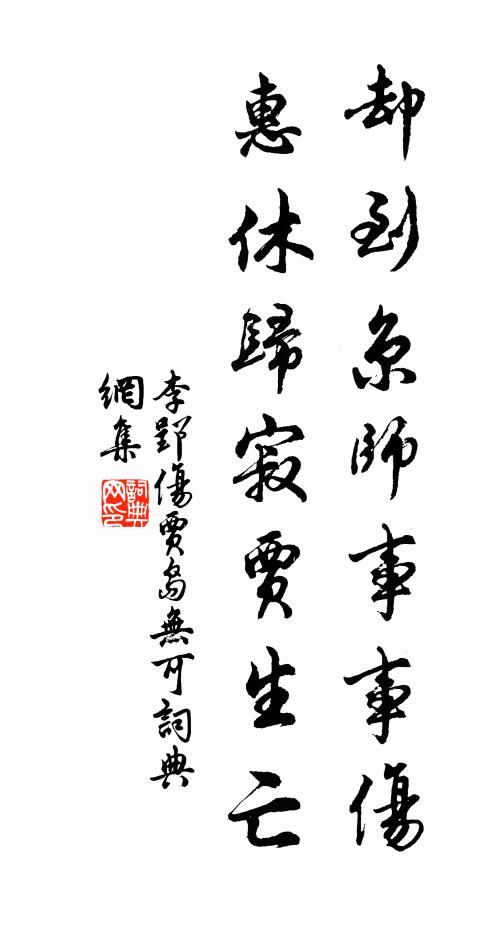 却到京師事事傷
惠休歸寂賈生亡
李郢傷賈島無可詞典
網集
詞典
网印